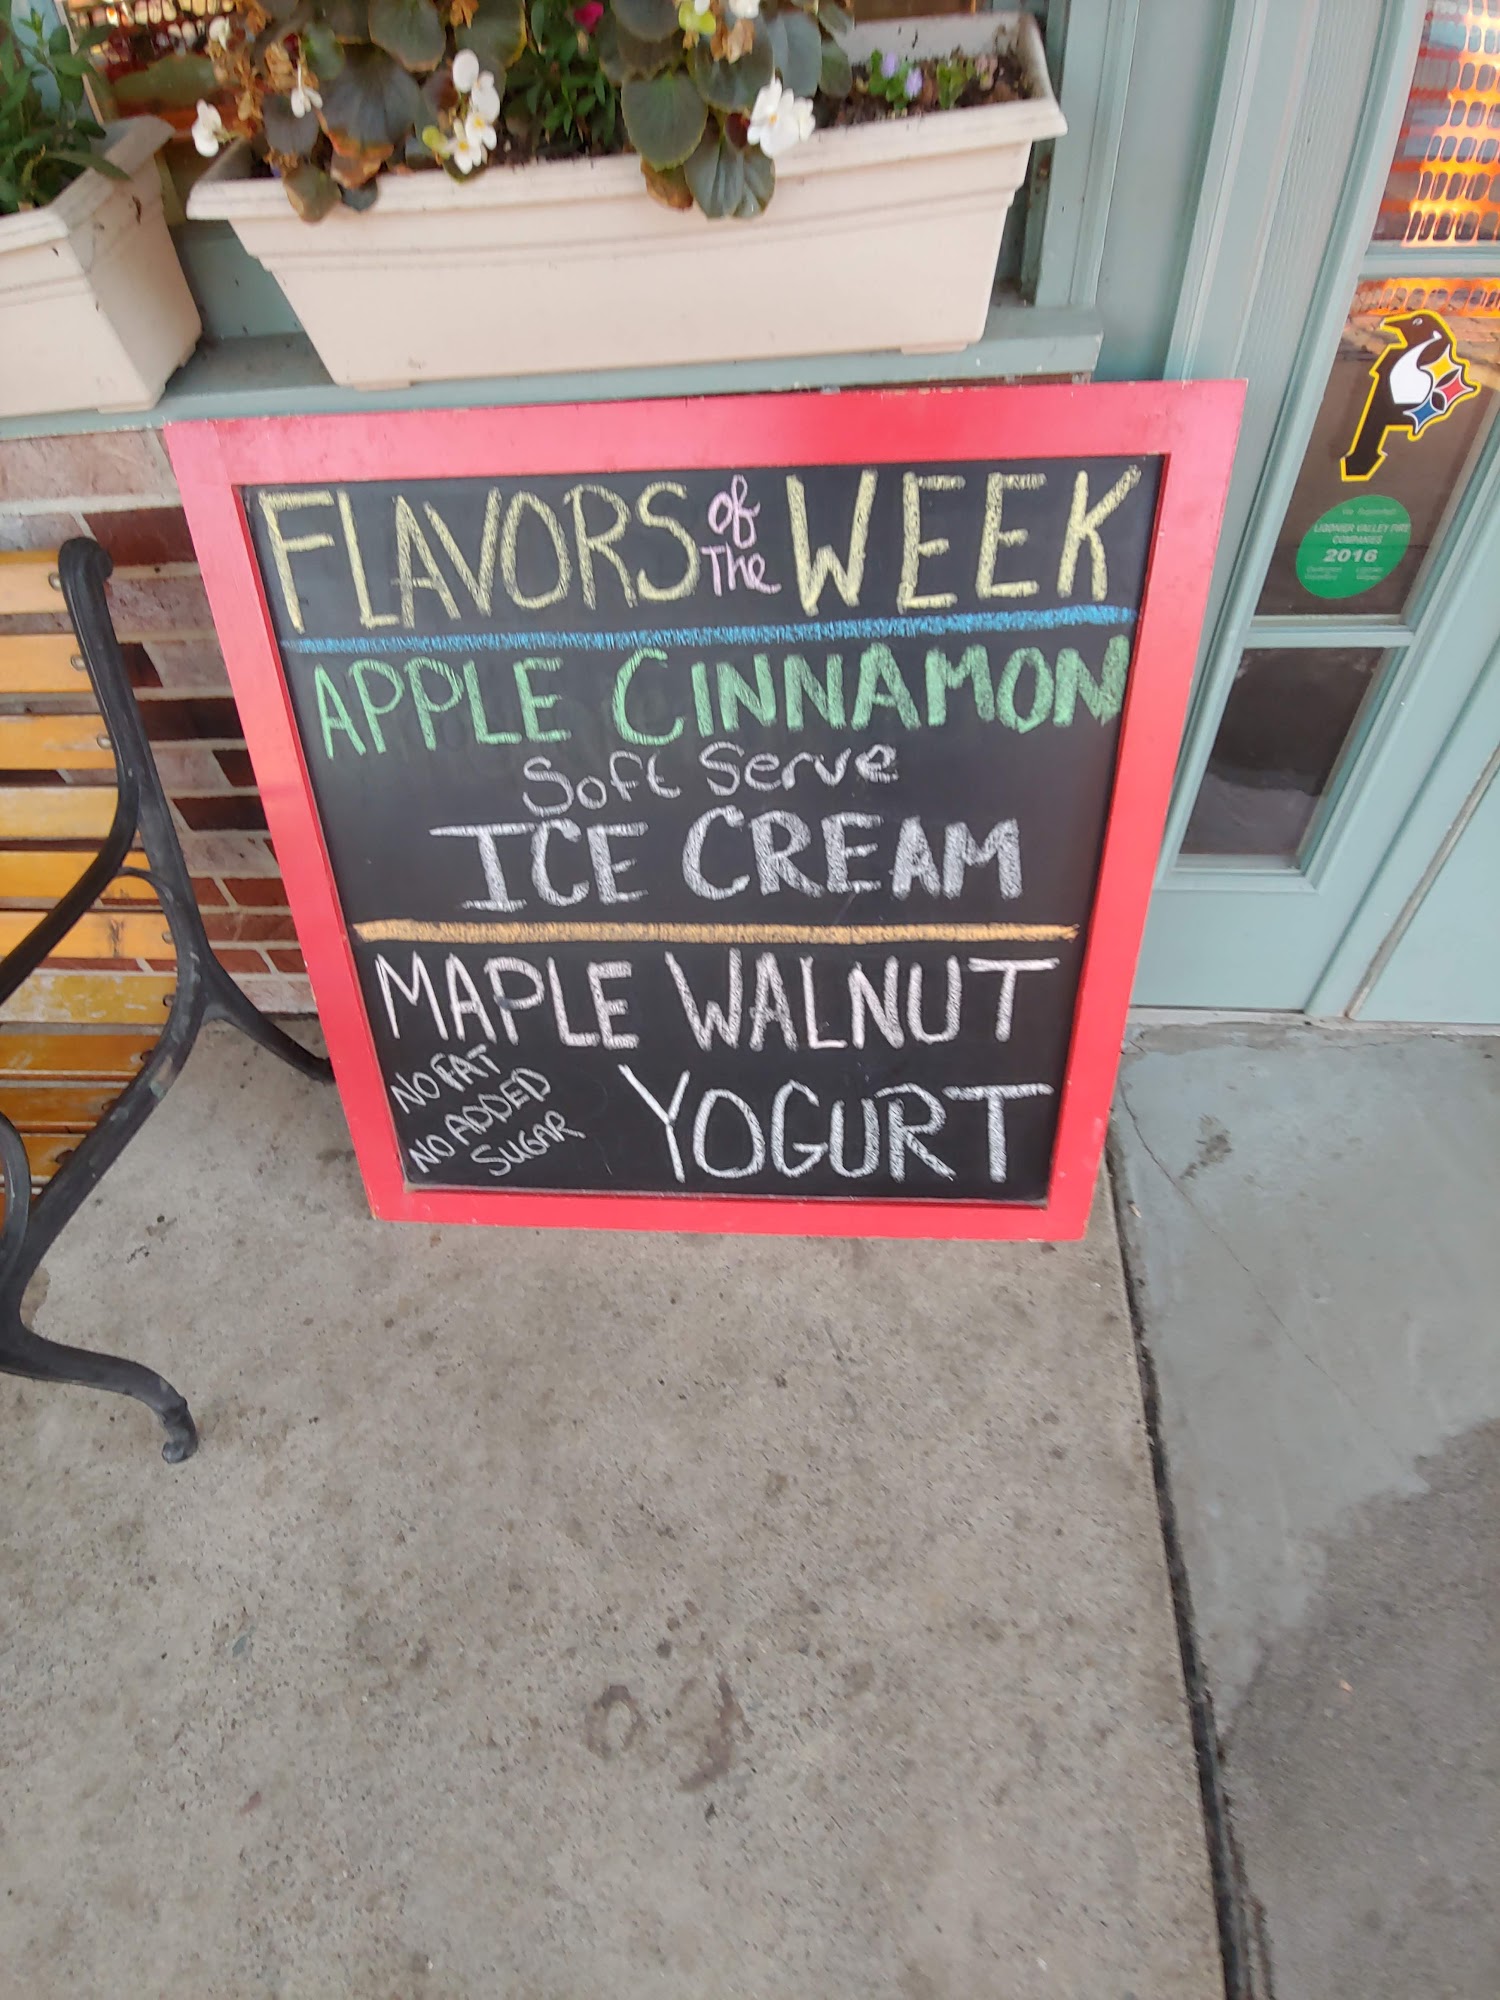 FLAVORS of The WEEK
APPLE CINNAMON
Soft Serve
ICE CREAM
MAPLE WALNUT
NO FAT
NO ADDED
SUGAR
YOGURT
We Supported
LIGONIER VALLEY FIRE
COMPANIES
2016